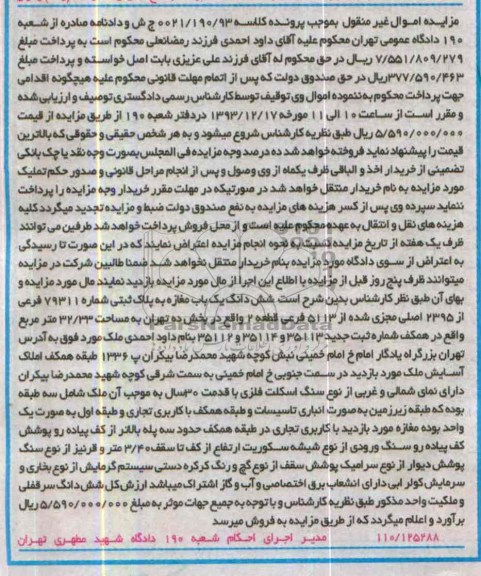 مزایده اموال غیر منقول بموجب پرونده کلاسه ۰۰۲۱/۱۹۰/۹۳ ج ش و دادنامه صادره از شعبه
۱۹۰ دادگاه عمومی تهران محکوم علیه آقای داود احمدی فرزند رمضانعلی محکوم است به پرداخت مبلغ
۷/۵۵۱/۸۰۹/۲۷۹ ریال در حق محکوم له آقای فرزند علی عزیزی بابت اصل خواسته و پرداخت مبلغ
۳۷۷/۵۹۰/۴۶۳ ریال در حق صندوق دولت که پس از اتمام مهلت قانونی محکوم علیه هیچگونه اقدامی
جهت پرداخت محکوم به ننموده اموال وی توقیف توسط کارشناس رسمی دادگستری توصیف و ارزیابی شده
و مقرر است از ساعت ۱۰ الی ۱۱ مورخه ۱۳۹۳/۱۲/۱۷ در دفتر شعبه ۱۹۰ از طریق مزایده از قیمت
۵/۵۹۰/۰۰۰/۰۰۰ ریال طبق نظریه کارشناس شروع میشود و به هر شخص حقیقی و حقوقی که بالاترین
قیمت را پیشنهاد نماید فروخته خواهد شد ده درصد وجه مزایده فی المجلس بصورت وجه نقد یا چک بانکی
تضمینی از خریدار اخذ و الباقی ظرف یکماه از وی وصول و پس از انجام مراحل قانونی و صدور حکم تملیک
مورد مزایده به نام خریدار منتقل خواهد شد در صورتیکه در مهلت مقرر خریدار وجه مزایده را پرداخت
ننماید سپرده وی پس از کسر هزینه های مزایده به نفع صندوق دولت ضبط و مزایده تجدید میگردد کلیه
هزینه های نقل و انتقال به عهده محکوم علیه است و از محل فروش پرداخت خواهد شد طرفین می توانند
ظرف یک هفته از تاریخ مزایده نسبت به نحوه انجام مزایده اعتراض نمایند که در این صورت تا رسیدگی
به اعتراض از سوی دادگاه مورد مزایده بنام خریدار منتقل نخواهد شد ضمنا طالبین شرکت در مزایده
میتوانند ظرف پنج روز قبل از مزایده با اطلاع این اجرا از مال مورد مزایده بازدید نمایند مال مورد مزایده و
بهای آن طبق نظر کارشناس بدین شرح است شش دانگ یک باب مغازه به پلاک ثبتی شماره ۷۹۳۱۱ فرعی
از ۲۳۹۵ اصلی مجزی شده از ۵۱۱۳ فرعی قطعه ۲ واقع در بخش ده تهران به مساحت ۳۲/۳۳ متر مربع
واقع در همکف شماره ثبت جدید ۳۵۱۱۳ و ۳۵۱۱۴ و ۳۵۱۱۲ بنام داود احمدی ملک مورد فوق به آدرس
تهران بزرگراه یادگار امام خ امام خمینی نبش کوچه شهید محمدرضا بیکران پ ۱۳۳۶ طبقه همکف املاک
آسایش ملک مورد بازدید در سمت جنوبی خ امام خمینی به سمت شرقی کوچه شهید محمدرضا بیکران
دارای نمای شمالی و غربی از نوع سنگ اسکلت فلزی با قدمت ۳۰ سال به موجب آن ملک شامل سه طبقه
بوده که طبقه زیرزمین به صورت انباری تاسیسات و طبقه همکف با کاربری تجاری و طبقه اول به صورت یک
واحد بوده مغازه مورد بازدید با کاربری تجاری در طبقه همکف حدود سه پله بالاتر از کف پیاده رو پوشش
کف پیاده رو سنگ ورودی از نوع شیشه سکوریت ارتفاع از کف تا سقف ۳/۴۰ متر و قرنیز از نوع سنگ
پوشش دیوار از نوع سرامیک پوشش سقف از نوع گچ و رنگ کرکره دستی سیستم گرمایش از نوع بخاری و
سرمایش کولر آبی دارای انشعاب برق اختصاصی و آب و گاز اشتراک میباشد ارزش کل شش دانگ سرقفلی
و ملکیت واحد مذکور طبق نظریه کارشناس و با توجه به جمیع جهات موثر به مبلغ ۵/۵۹۰/۰۰۰/۰۰۰ ریال
برآورد و اعلام میگردد که از طریق مزایده به فروش میرسد
۱۱۰/۱۲۵۲۸۸ مدیر اجرای احکام شعبه ۱۹۰ دادگاه شهید مطهری تهران